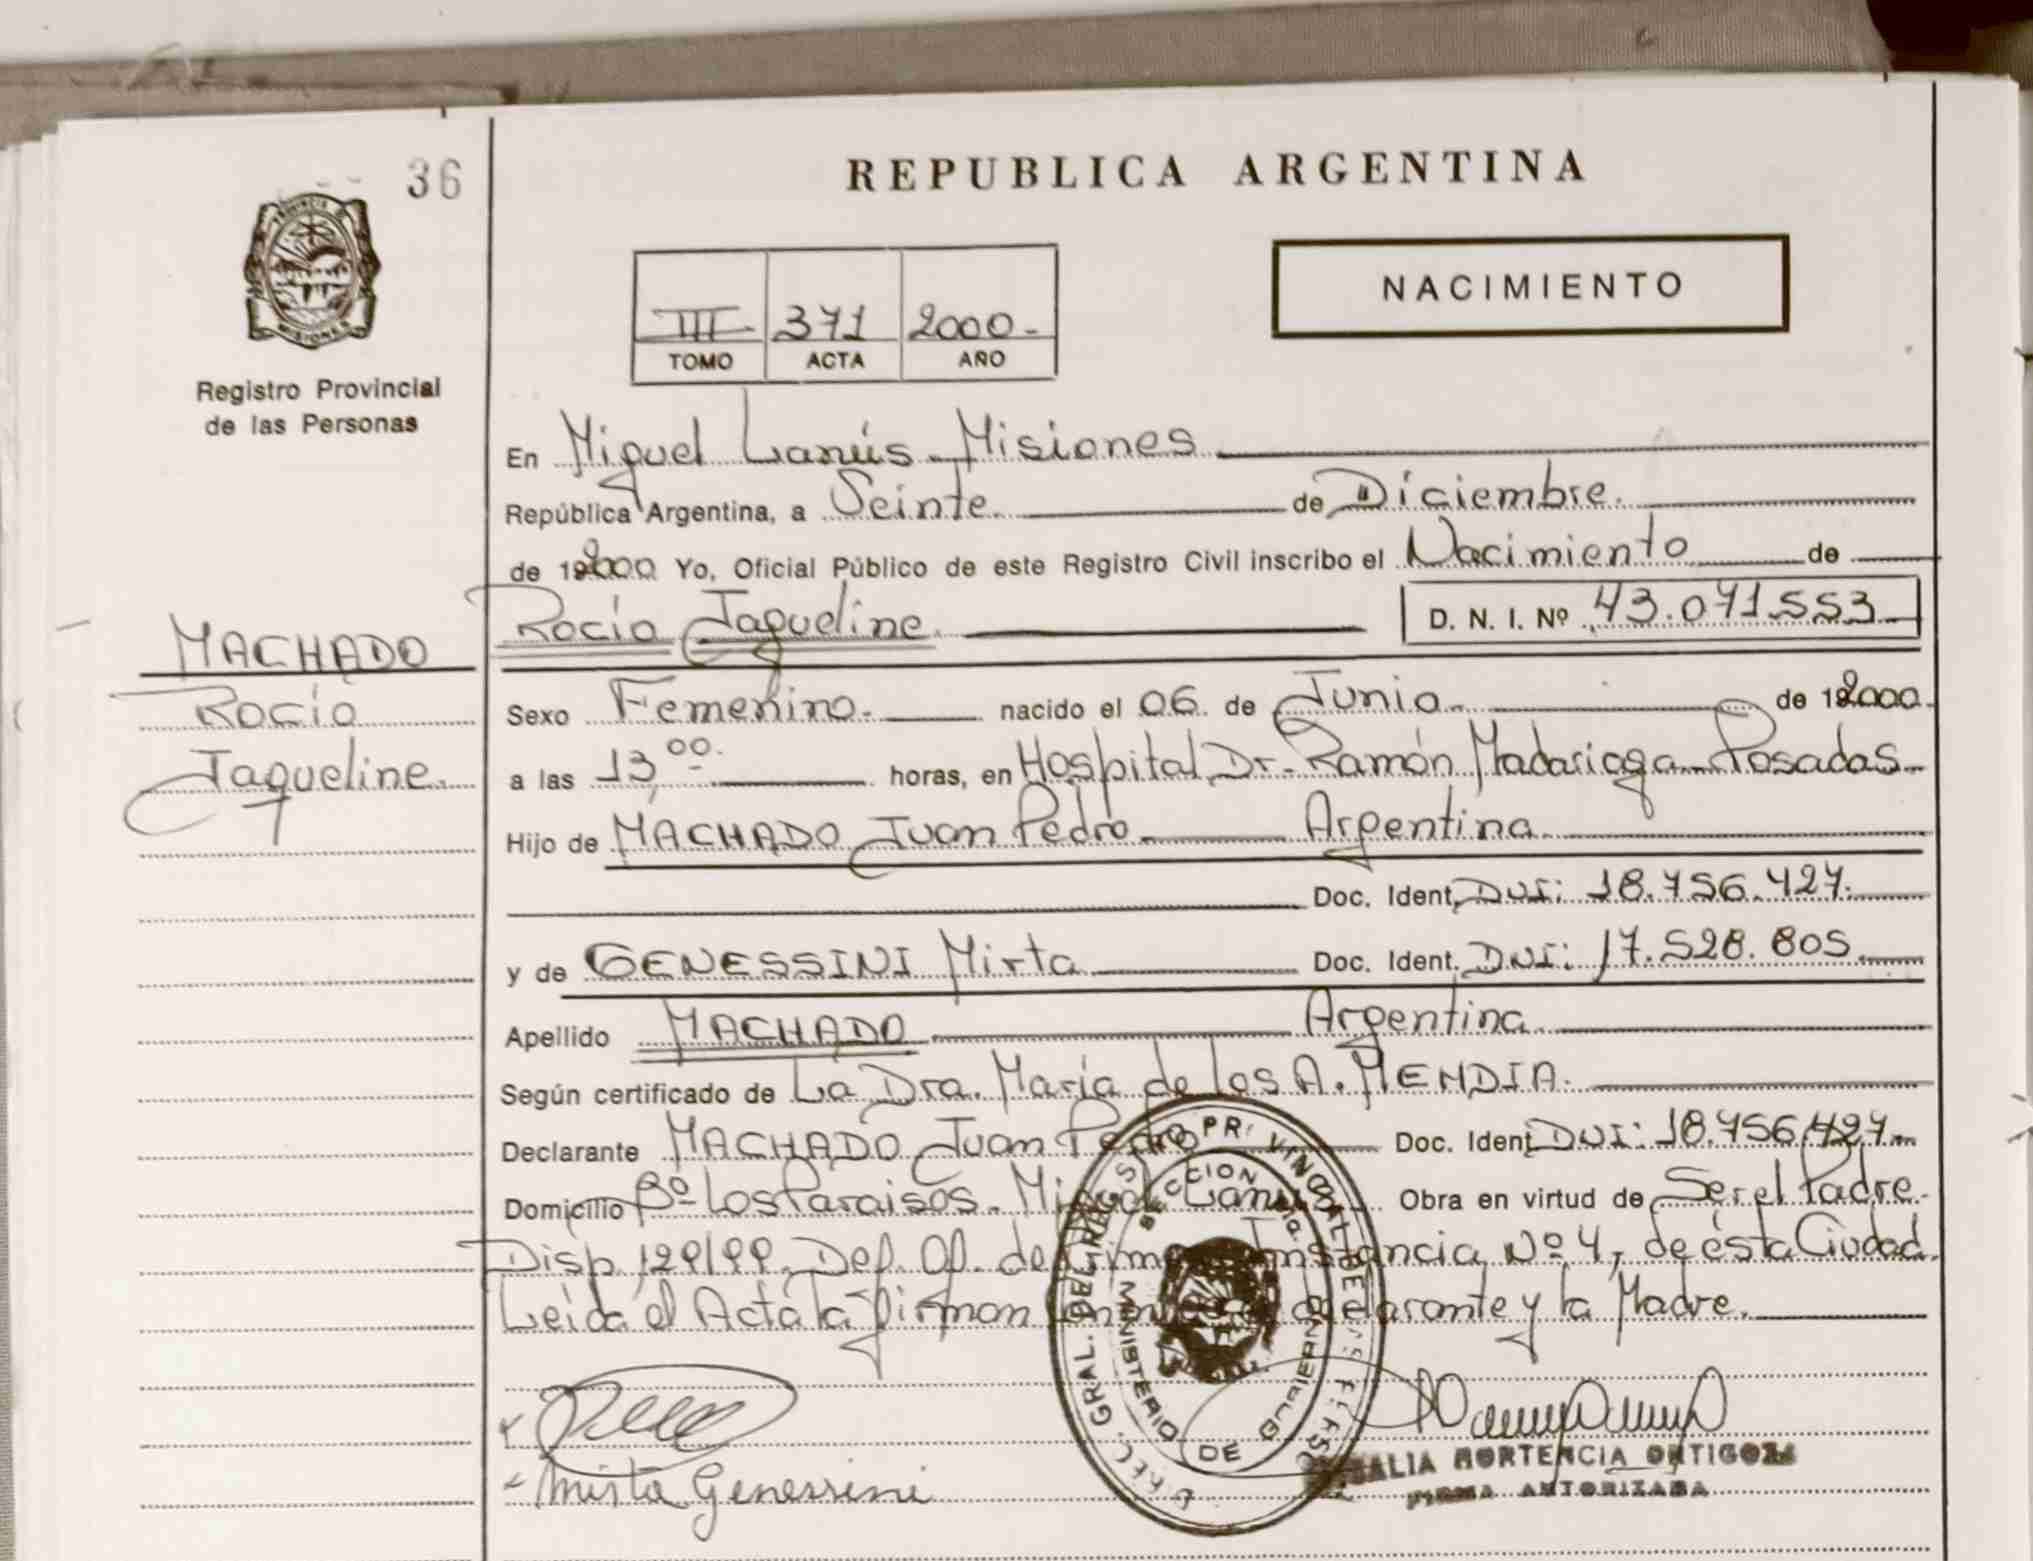 36
REPUBLICA ARGENTINA
PROVINCIA DE
MISIONES
Registro Provincial
de las Personas
NACIMIENTO
III 371 2000-
TOMO ACTA AÑO
En Miguel Lanús - Misiones
República Argentina, a Veinte de Diciembre.
de 192000 Yo, Oficial Público de este Registro Civil inscribo el Nacimiento de
Rocío Jaqueline. D. N. I. Nº 43.071.553
MACHADO
Rocío
Jaqueline.
Sexo Femenino. nacido el 06 de Junio. de 192000.
a las 13,00. horas, en Hospital Dr. Ramón Madariaga - Posadas
Hijo de MACHADO Juan Pedro. Argentina.
Doc. Ident. DNI: 18.756.427.
y de GENESSINI Mirta Doc. Ident. DNI: 17.528.805.
Apellido MACHADO Argentina
Según certificado de La Dra. María de los A. MENDIA.
Declarante MACHADO Juan Pedro Doc. Ident. DNI: 18.756.427.
Domicilio Bº Los Paraisos. Miguel Lanús. Obra en virtud de Ser el Padre.
Disp. 129/99. Def. Of. de Instancia Nº 4, de ésta Ciudad.
Leida el Acta la firman declarante y la Madre.
Mirta Genessini
MINISTERIO DE GOBIERNO
HORTENCIA ORTIGOZA
FIRMA AUTORIZADA